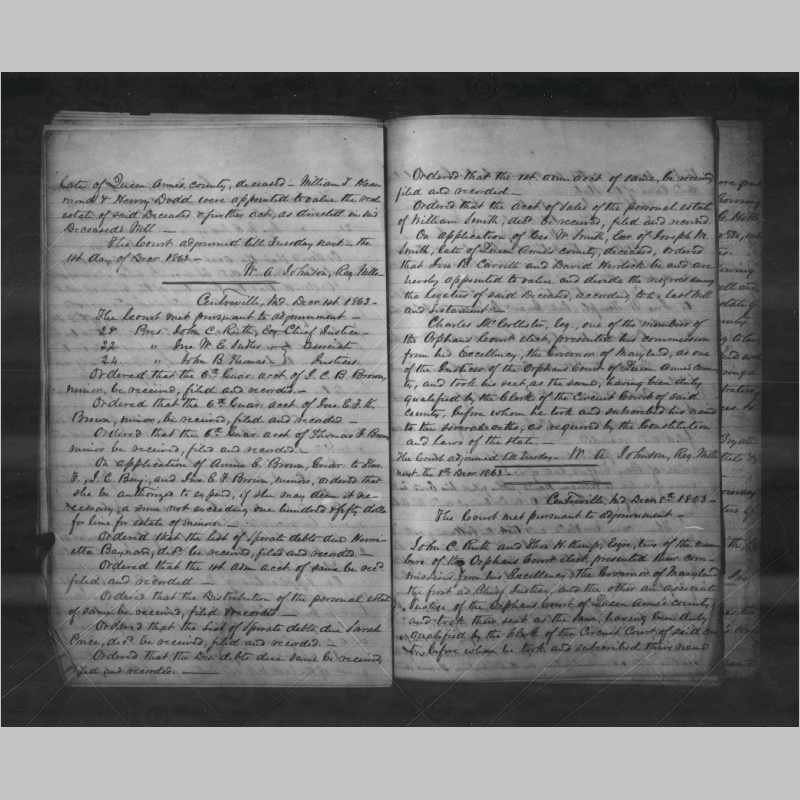 late of Queen Anne's county, deceased – William T. Ham-
mond & Henry Dodd were appointed to value the real
estate of said Deceased & further act, as directed in his
Deceased's Will. —
The Court adjourned till Tuesday next – the
1st day of Decr 1863 –
W. A. Johnson, Reg. Wills
Centreville, Md. Decr 1st 1863 –
The Court met pursuant to adjournment –
28 Pres. John C. Ruth, Esq. Chief Justice –
22 " Jno W. E. Associat
24 " John B. Thomas Justices
Ordered that the 6th Guar. acct of J. C. B. Brown,
minor, be received, filed and recorded. —
Ordered that the 6th Guar. acct of Jno E. F. H.
Brown, minor, be received, filed and recorded –
Ordered that the 6th Guar. acct of Thomas F. Brown
minor be received, filed and recorded. –
On application of Annie E. Brown, Guar. to Thos
F., J. C. Boy., and Jno E. F. Brown, minors, ordered that
she be authorized to expend, if she may deem it ne-
cessary, a sum not exceeding one hundred & fifty dolls
for lime for estate of minors –
Ordered that the List of sperate debts due Henri-
etta Baynard, decd be received, filed and recorded. –
Ordered that the 1st adm acct of same be recd
filed, and recorded –
Ordered that the Distribution of the personal estate
of same be received, filed & recorded –
Ordered that the List of sperate debts, due Sarah
Price, decd be received, filed and recorded. –
Ordered that the Des. debts due same be received,
filed and recorded. ———
Ordered that the 1st adm. acct of same, be received
filed and recorded –
Ordered that the acct of sales of the personal estate
of William Smith, decd be received, filed and record
On application of Geo. W. Smith, Exr of Joseph M.
Smith, late of Queen Anne's county, deceased, ordered
that Jno B. Carvill and David be and are
hereby appointed to value and divide the negroes among
the legatees of said Deceased, according to his last Will
and testament –
Charles McCollister, Esq., one of the members of
the Orphans Court elect, presented his commission
from his Excellency, the Governor of Maryland, as one
of the Justices of the Orphans Court of Queen Anne's coun-
ty, and took his seat as the same, having been duly
qualified by the Clerk of the Circuit Court of said
county, before whom he took and subscribed his name
to the several oaths, as required by the Constitution
and laws of the State –
The Court adjourned till Tuesday – W. A. Johnson, Reg. Wills
next the 8th Decr 1863 –
Centreville, Md Decr 8th 1863 –
The Court met pursuant to adjournment –
John C. Ruth and Thos H. Kemp, Esqrs, two of the mem-
bers of the Orphans Court elect, presented their com-
missions from his Excellency, the Governor of Maryland
the first as Chief Justice, and the other an associate
Justice of the Orphans Court of Queen Anne's county,
and took their seat as the same, having been duly
qualified by the Clerk of the Circuit Court of said co
before whom he took and subscribed their name